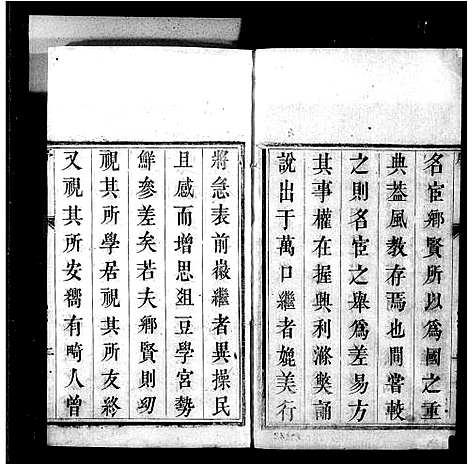 名宦鄉賢所以爲國之重
典蓋風教存焉也間嘗較
之則名宦之舉爲差易方
其事權在握興利滌獘誦
說出于萬口繼者媲美行
將急表前徽繼者異操民
且感而增思俎豆學宮勢
鮮參差矣若夫鄉賢則幼
視其所學居視其所友終
又視其所安嚮有畸人曾